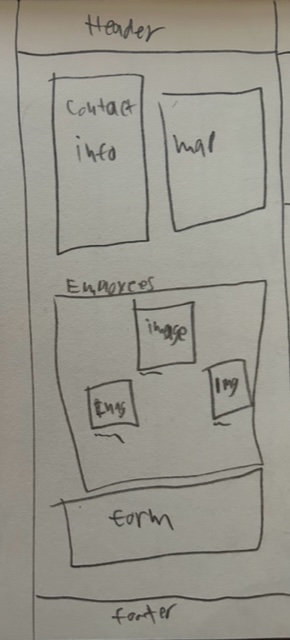 Header
Contact
info
map
Employees
image
Img
Img
form
footer